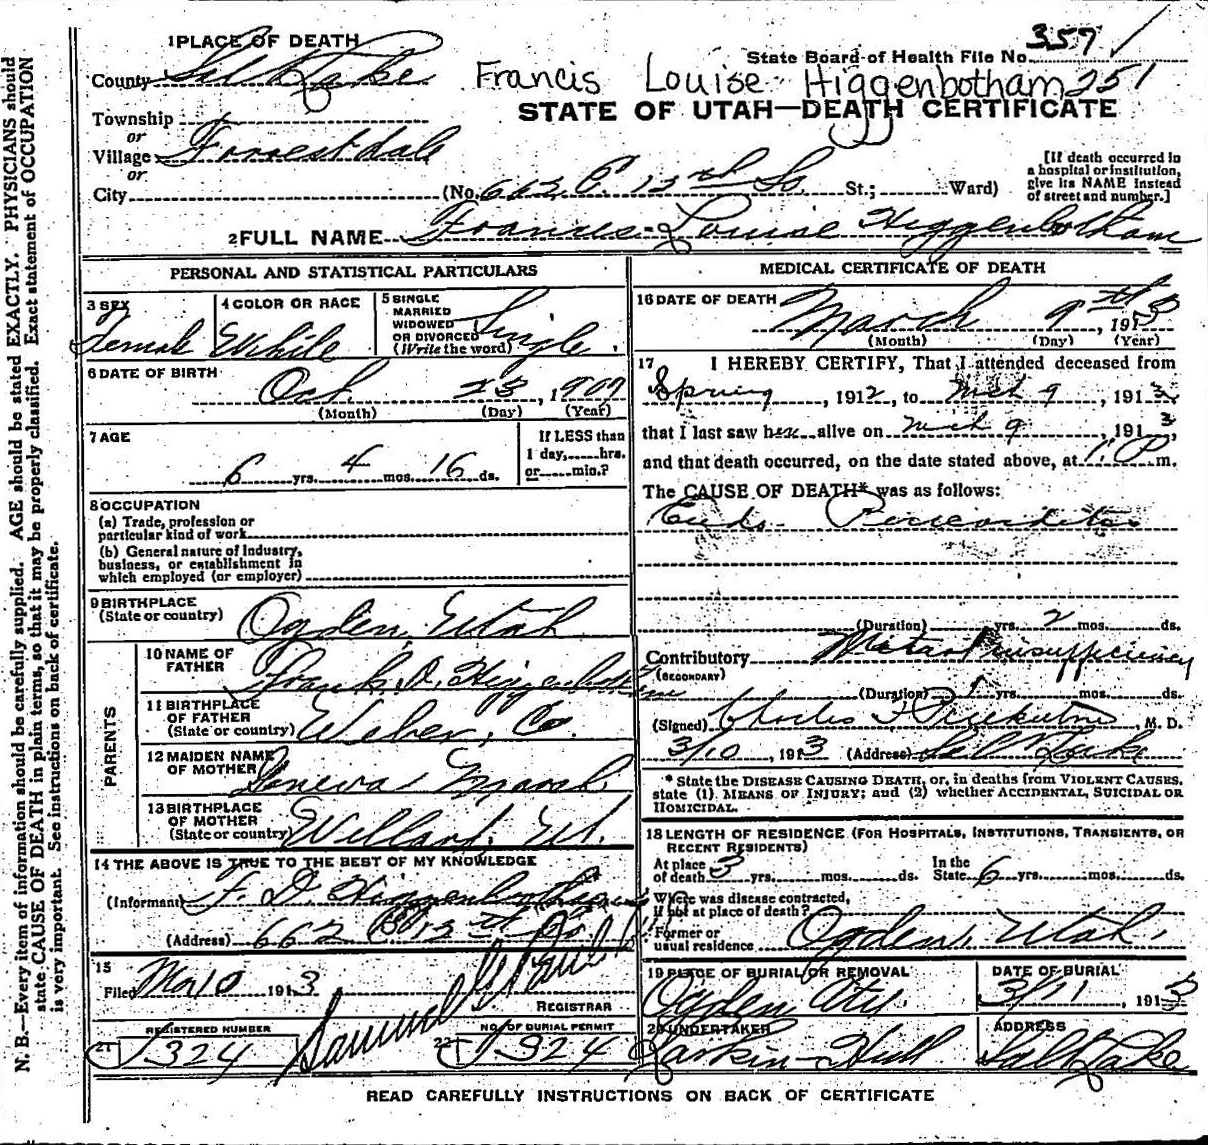 N. B.—Every item of information should be carefully supplied. AGE should be stated EXACTLY. PHYSICIANS should
state CAUSE OF DEATH in plain terms, so that it may be properly classified. Exact statement of OCCUPATION
is very important. See instructions on back of certificate.
1 PLACE OF DEATH
State Board of Health File No. 357
County Salt Lake
Francis Louise Higgenbotham 251
STATE OF UTAH—DEATH CERTIFICATE
Township
or
Village Forrestdale
or
City (No. 662 E. 12th So. St.; Ward)
[If death occurred in
a hospital or institution,
give its NAME instead
of street and number.]
2 FULL NAME Frances Louise Higgenbotham
PERSONAL AND STATISTICAL PARTICULARS
3 SEX Female
4 COLOR OR RACE White
5 SINGLE
MARRIED
WIDOWED
OR DIVORCED
(Write the word) Single
6 DATE OF BIRTH
Oct 23, 1907
(Month) (Day) (Year)
7 AGE
6 yrs. 4 mos. 16 ds.
If LESS than
1 day, hrs.
or min.?
8 OCCUPATION
(a) Trade, profession or
particular kind of work
(b) General nature of Industry,
business, or establishment in
which employed (or employer)
9 BIRTHPLACE
(State or country) Ogden, Utah
PARENTS
10 NAME OF
FATHER Frank D. Higgenbotham
11 BIRTHPLACE
OF FATHER
(State or country) Weber, Co.
12 MAIDEN NAME
OF MOTHER Geneva Marsh
13 BIRTHPLACE
OF MOTHER
(State or country) Willard, Ut.
14 THE ABOVE IS TRUE TO THE BEST OF MY KNOWLEDGE
(Informant) F. D. Higgenbotham
(Address) 662 E 12th So.
15
Filed Mar 10 1913 Samuel G Paul
REGISTRAR
REGISTERED NUMBER
21 324
NO. OF BURIAL PERMIT
22 324
MEDICAL CERTIFICATE OF DEATH
16 DATE OF DEATH
March 9th, 1913
(Month) (Day) (Year)
17 I HEREBY CERTIFY, That I attended deceased from
Spring, 1912, to Mch 9, 1913,
that I last saw her alive on Mch 9, 1913,
and that death occurred, on the date stated above, at 1. P m.
The CAUSE OF DEATH* was as follows:
Endo Pericarditis
(Duration) yrs. 2 mos. ds.
Contributory Mitral insufficiency
(SECONDARY)
(Duration) yrs. mos. ds.
(Signed) Charles F, M. D.
3/10, 1913 (Address) Salt Lake
* State the DISEASE CAUSING DEATH, or, in deaths from VIOLENT CAUSES,
state (1). MEANS OF INJURY; and (2) whether ACCIDENTAL, SUICIDAL OR
HOMICIDAL.
18 LENGTH OF RESIDENCE (FOR HOSPITALS, INSTITUTIONS, TRANSIENTS, OR
RECENT RESIDENTS)
At place
of death 3 yrs. mos. ds.
In the
State 6 yrs. mos. ds.
Where was disease contracted,
if not at place of death?
Former or
usual residence Ogden, Utah.
19 PLACE OF BURIAL OR REMOVAL
Ogden City
DATE OF BURIAL
3/11, 1913
20 UNDERTAKER
Larkin-Hull
ADDRESS
Salt Lake
READ CAREFULLY INSTRUCTIONS ON BACK OF CERTIFICATE